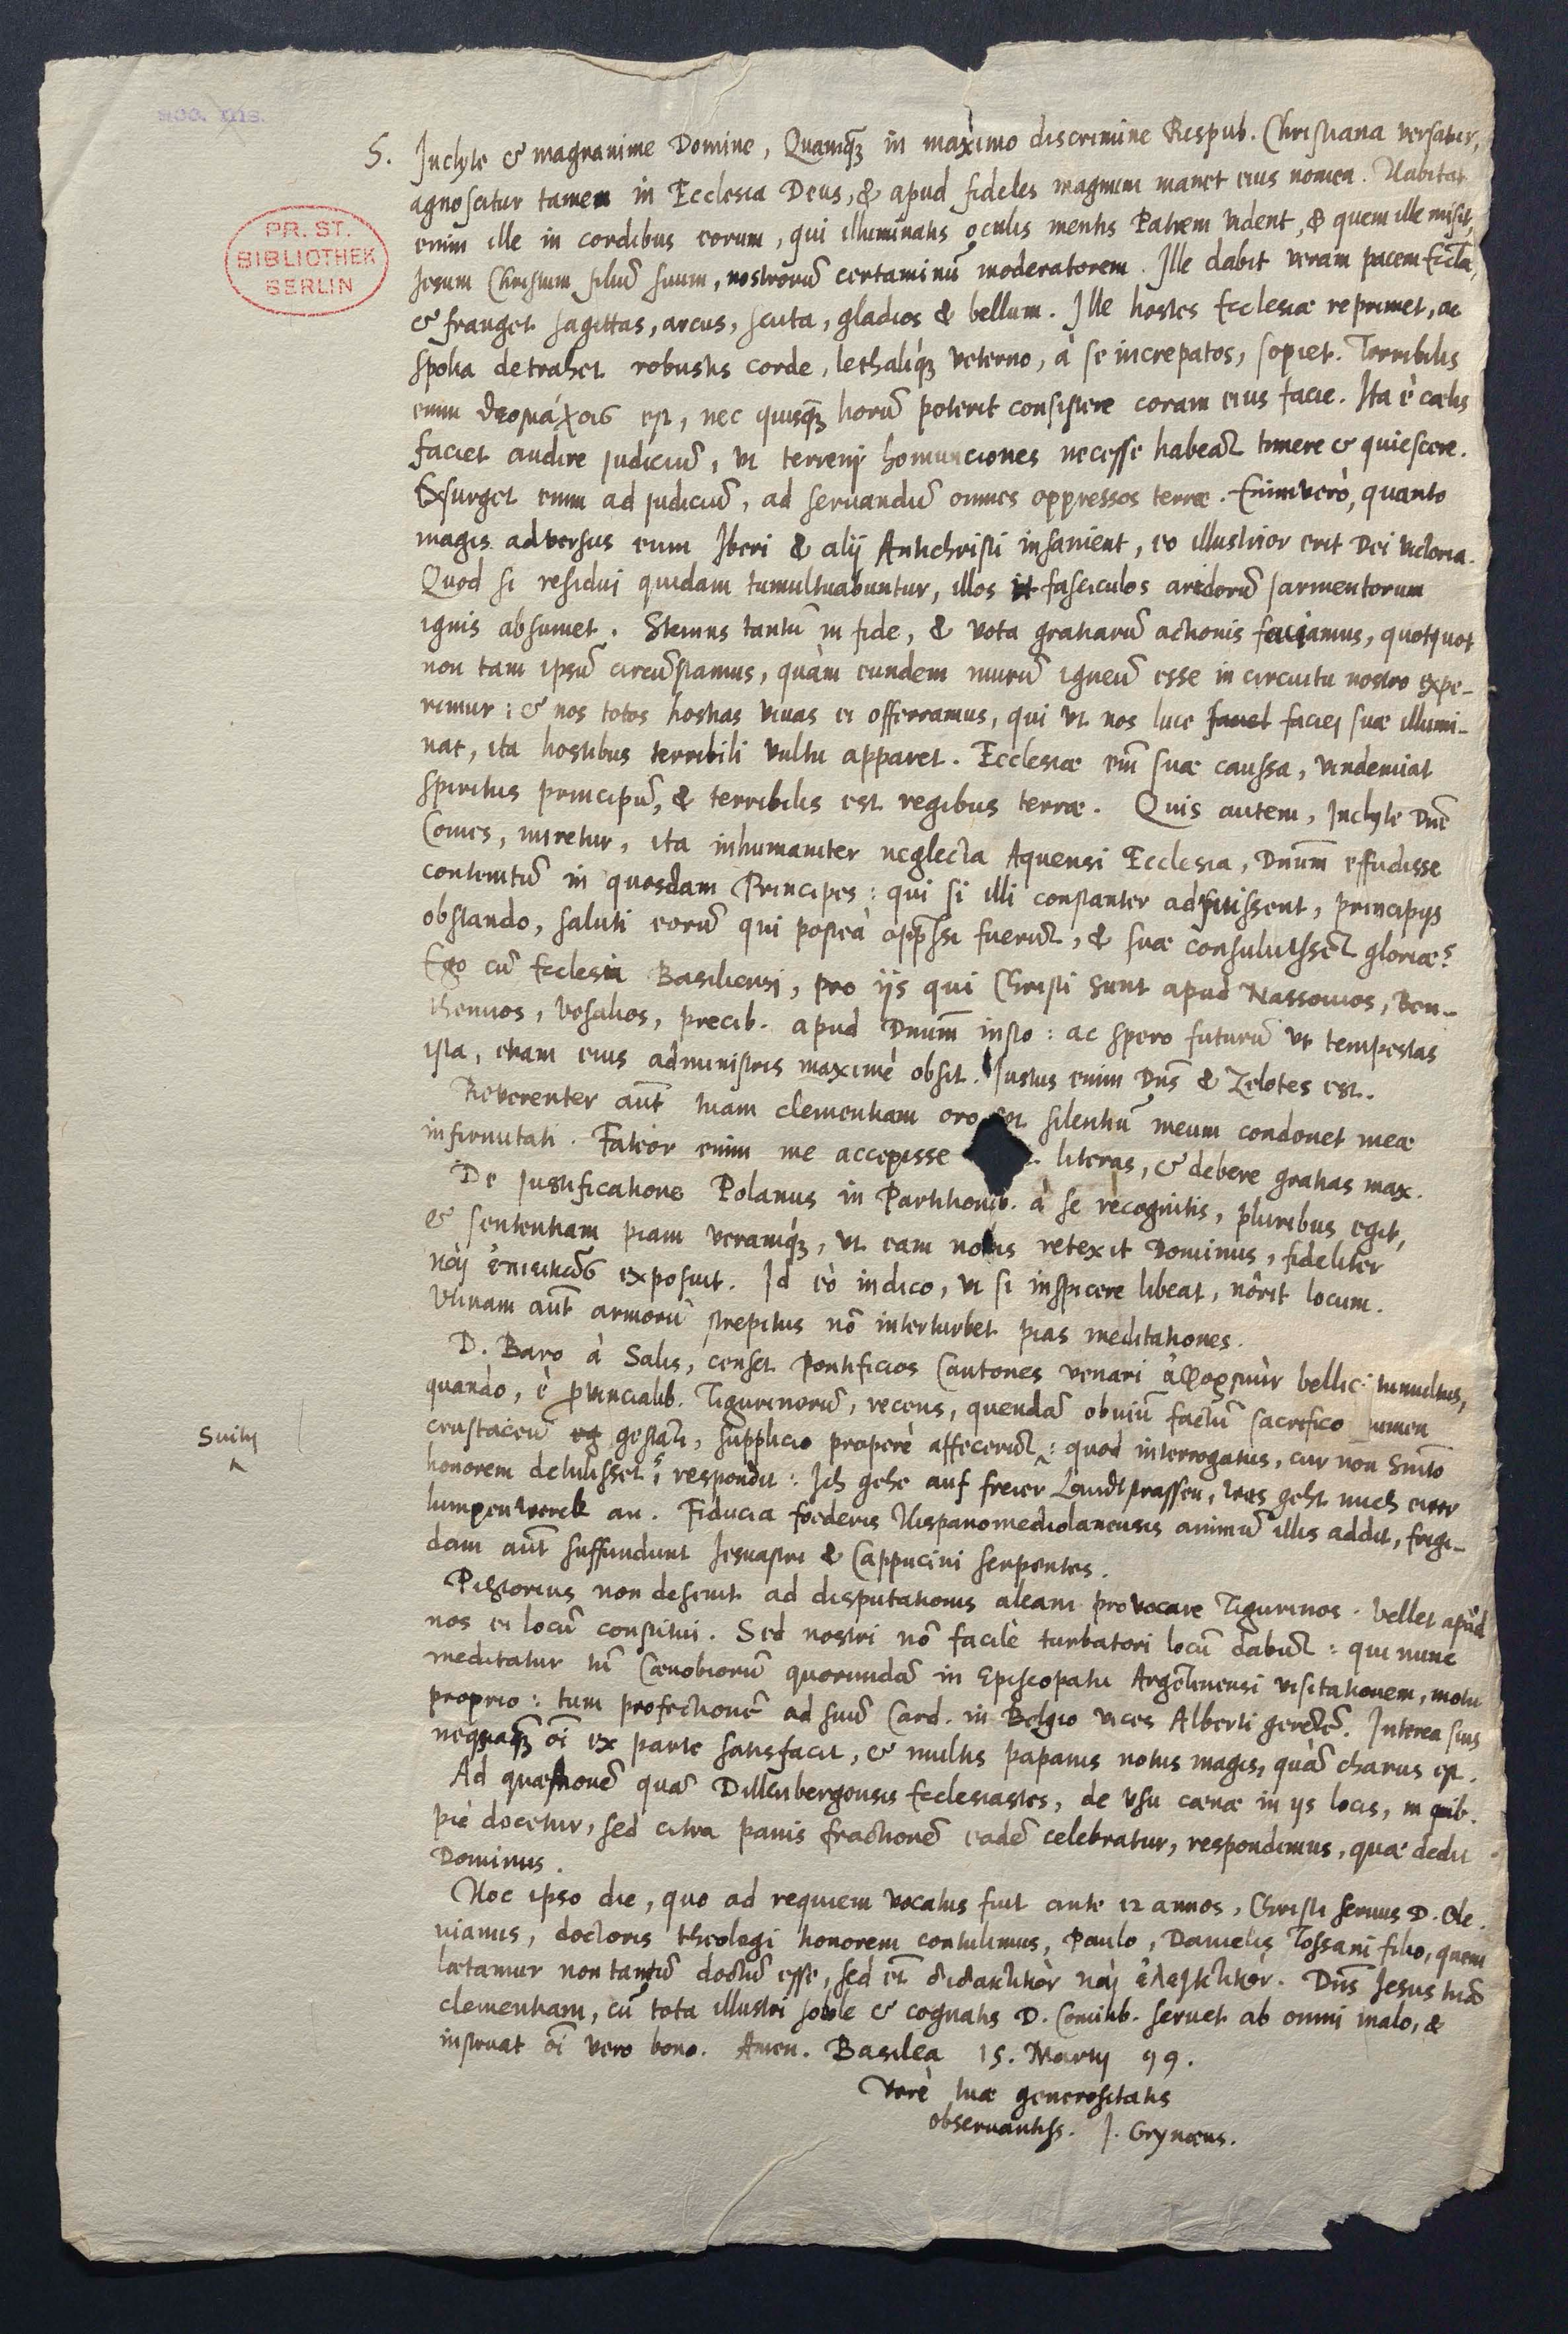 acc. ms.
PR. ST.
BIBLIOTHEK
BERLIN
S. Inclyte & magnanime Domine, Quamq̃ in maximo discrimine Respub. Christiana versatur,
agnoscitur tamen in Ecclesia Deus, & apud fideles magnum manet eius nomen. Habitat
enim ille in cordibus eorum, qui illuminatis oculis mentis Patrem vident, & quem ille misit,
Jesum Christum filiũ suum, nostrorũ certaminũ moderatorem. Ille dabit veram pacem Eccłæ,
& franget sagittas, arcus, scuta, gladios & bellum. Ille hostes Ecclesiæ reprimet, ac
spolia detrahet robustis corde, lethaliq́ue veterno, à se increpatos, sopiet. Terribilis
enim θεομάχοις est, nec quisq̃ horũ poterit consistere coram eius facie. Ita è cælis
faciet audire judiciũ, ut terreni homunciones necesse habeãt timere & quiescere.
Exsurget enim ad judiciũ, ad servandũ omnes oppressos terræ. Enimverò, quanto
magis adversus eum Iberi & alij Antichristi insanient, eo illustrior erit Dei victoria.
Quod si residui quidam tumultuabuntur, illos ut fasciculos aridorũ sarmentorum
ignis absumet. Stemus tantũ in fide, & vota gratiarũ actionis faciamus, quotquot
non tam ipsũ circũstamus, quàm eundem murũ igneũ esse in circuitu nostro expe-
rimur: & nos totos hostias vivas ei offerramus, qui ut nos luce faciei suæ illumi-
nat, ita hostibus terribili vultu apparet. Ecclesiæ em̃ suæ caussa, vindemiat
spiritus principũ, & terribilis est regibus terræ. Quis autem, Inclyte Dn̄e
Comes, miretur, ita inhumaniter neglecta Aquensi Ecclesia, Dnum̃ effudisse
contemtũ in quosdam Principes: qui si illi constanter adfuissent, principijs
obstando, saluti eorũ qui posteà opp̃ssi fuerũt, & suæ consuluissẽt gloriæ?
Ego cũ Ecclesia Basiliensi, pro ijs qui Christi sunt apud Nassovios, Ben-
themios, Vesalios, precib. apud Dnum̃ insto: ac spero futurũ ut tempestas
ista, etiam eius administris maximè obsit. Justus enim Dn̄s & Zelotes est.
Reverenter aũt tuam clementiam oro ut silentiũ meum condonet meæ
infirmitati. Fateor enim me accepisse literas, & debere gratias max.
De Justificatione Polanus in Partitionib. à se recognitis, pluribus egit,
& sententiam piam veramq́ue, ut eam nobis retexit Dominus, fideliter
καὶ ἐπιεικῶς exposuit. Id eò indico, ut si inspicere libeat, nôrit locum.
Utinam aũt armorũ strepitus nõ interturbet pias meditationes.
D. Baro à Salis, censet Pontificios Cantones venari ἀφορμὴν bellici tumultus,
quando, è p̱vincialib. Tigurinorũ, recens, quendã obviũ factũ sacrifico numen
crustaceũ gestãti, supplicio properè affecerũt: quod interrogatus, cur non Smĩto
Suitij
honorem detulisset? respondit: Ich gehe auf freier Landtstrassen, was geht mich ewer
lumpenwerck an. Fiducia foederis Hispanomediolanensis animũ illis addit, frigi-
dam aũt suffundunt Jesuastri & Cappucini serpentes.
Pistorius non desinit ad disputationis aleam provocare Tigurinos. Vellet apud
nos ei locũ constitui. Sed nostri nõ facilè turbatori locũ dabũt: qui nunc
meditatur tũ Cœnobiorũ quorundã in Episcopatu Argẽtinensi visitationem, motu
proprio: tum profectionẽ ad suũ Card. in Belgio vices Alberti gerẽtẽ. Interea suis
nequaq̃ õi ex parte satisfacit, & multis papanis notus magis, quã charus est.
Ad quæstionẽ quã Dillenbergensis Ecclesiastes, de usu cœnæ in ijs locis, in quib.
piè docetur, sed citra panis fractionẽ eadẽ celebratur, respondimus, quæ dedit
Dominus.
Hoc ipso die, quo ad requiem vocatus fuit ante 12 annos, Christi servus D. Ole-
vianus, doctoris theologi honorem contulimus, Paulo, Danielis Tossani filio, quem
lætamur non tantũ doctũ esse, sed et̃ διδακτικὸν καὶ ἐλεγκτικόν. Dn̄s Jesus tuã
clementiam, cũ tota illustri sobole & cognatis D. Comitib. servet ab omni malo, &
instruat õi vero bono. Amen. Basilea 15. Martij 99.
Verè tuæ generositatis
observantiss. J. Grynæus.